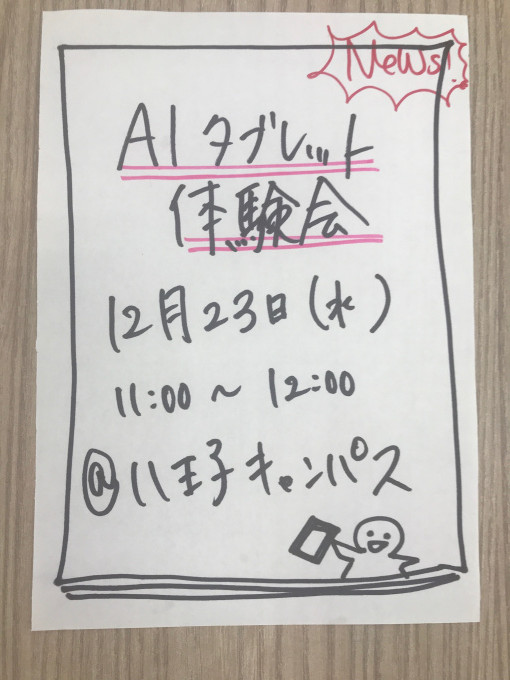 News!
AI タブレット
体験会
12月23日(水)
11:00 ~ 12:00
@八王子キャンパス